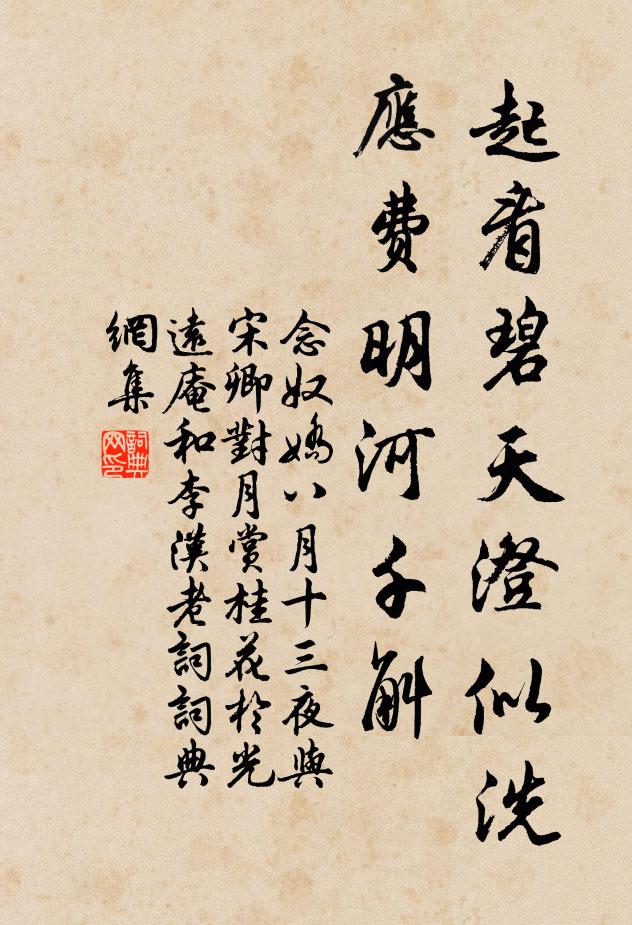 起看碧天澄似洗
應費明河千斛
念奴嬌八月十三夜與
宋卿對月賞桂花於光
遠庵和李漢老詞詞典
網集
詞典
网印